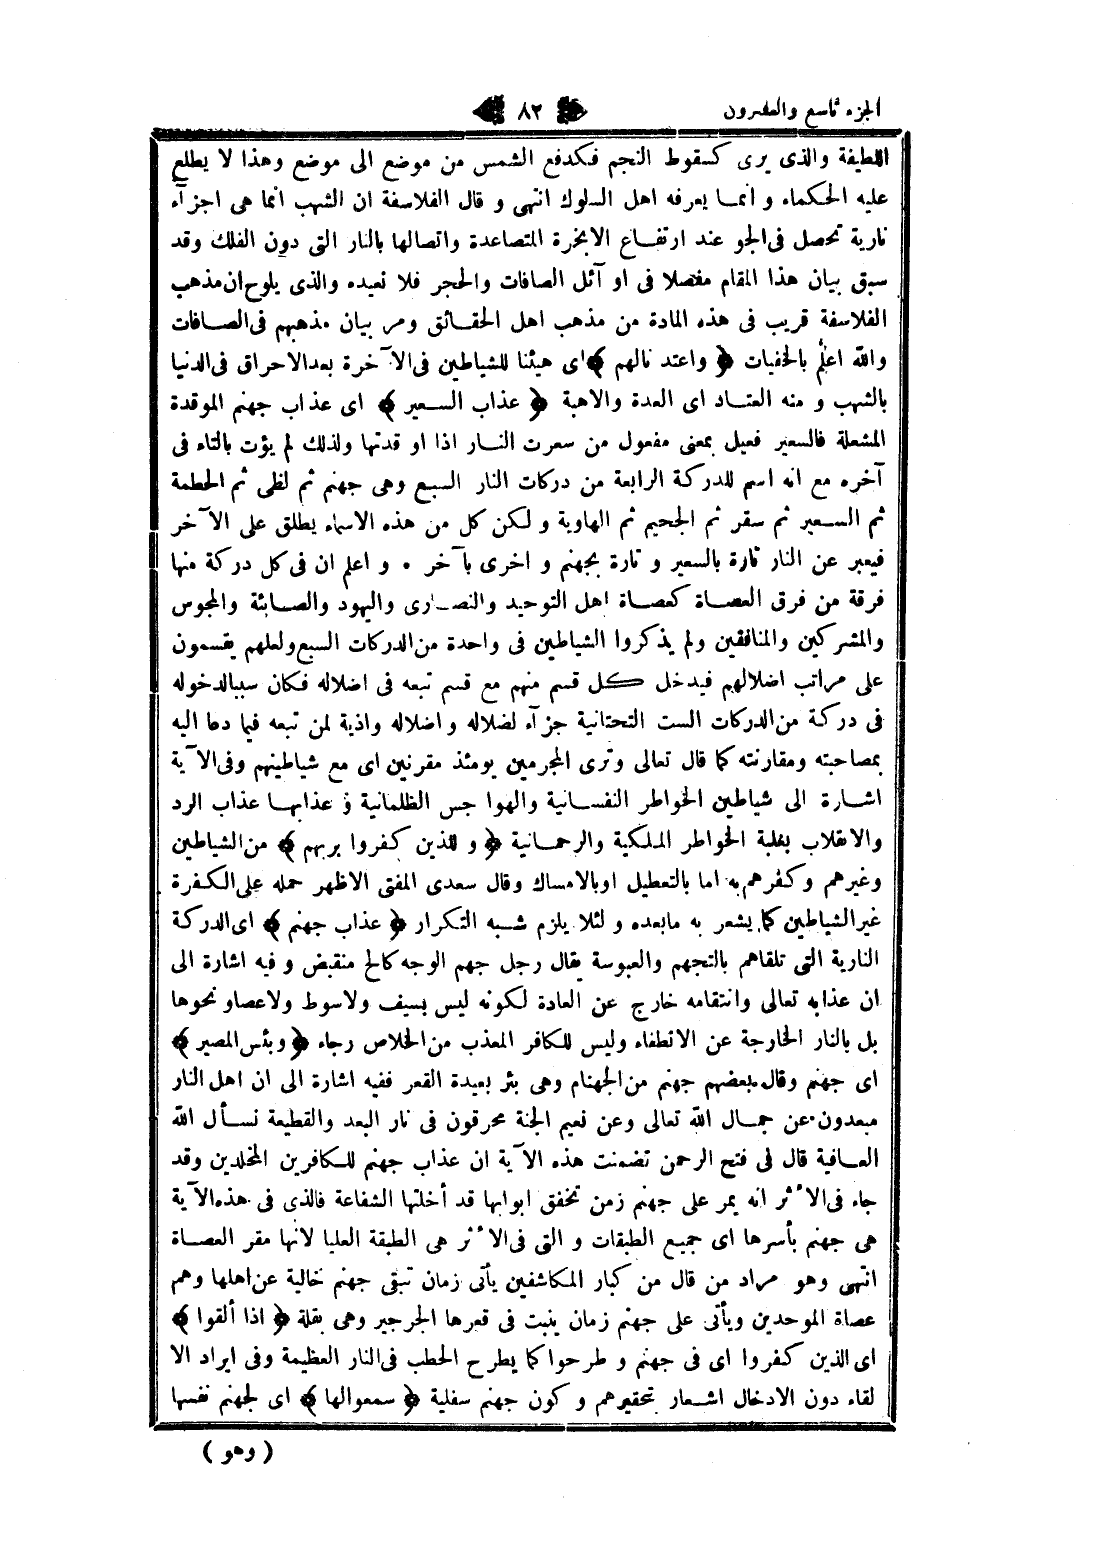 الجزء تاسع والعشرون ٨٢
اللطيفة والذى يرى كسقوط النجم فكدفع الشمس من موضع الى موضع وهذا لا يطلع
عليه الحكماء و انما يعرفه اهل السلوك انتهى و قال الفلاسفة ان الشهب انما هى اجزآء
نارية تحصل فى الجو عند ارتفاع الابخرة المتصاعدة واتصالها بالنار التى دون الفلك وقد
سبق بيان هذا المقام مفصلا فى او آئل الصافات والحجر فلا نعيده والذى يلوح ان مذهب
الفلاسفة قريب فى هذه المادة من مذهب اهل الحقائق ومر بيان مذهبهم فى الصافات
والله اعلم بالخفيات ﴿ واعتد نالهم ﴾ اى هيئنا للشياطين فى الآخرة بعد الاحراق فى الدنيا
بالشهب و منه العتاد اى العدة والاهبة ﴿ عذاب السعير ﴾ اى عذاب جهنم الموقدة
المشعلة فالسعير فعيل بمعنى مفعول من سعرت النار اذا او قدتها ولذلك لم يؤت بالتاء فى
آخره مع انه اسم للدركة الرابعة من دركات النار السبع وهى جهنم ثم لظى ثم الحطمة
ثم السعير ثم سقر ثم الجحيم ثم الهاوية و لكن كل من هذه الاسماء يطلق على الآخر
فيعبر عن النار تارة بالسعير و تارة بجهنم و اخرى بآخر • و اعلم ان فى كل دركة منها
فرقة من فرق العصاة كعصاة اهل التوحيد والنصارى واليهود والصابئة والمجوس
والمشركين والمنافقين ولم يذكروا الشياطين فى واحدة من الدركات السبع ولعلهم يقسمون
على مراتب اضلالهم فيدخل كل قسم منهم مع قسم تبعه فى اضلاله فكان سببالدخوله
فى دركة من الدركات الست التحتانية جزآء لضلاله و اضلاله واذية لمن تبعه فيما دعا اليه
بمصاحبته ومقارنته كما قال تعالى وترى المجرمين يومئذ مقرنين اى مع شياطينهم وفى الآية
اشارة الى شياطين الخواطر النفسانية والهوا جس الظلمانية و عذابها عذاب الرد
والانقلاب بغلبة الخواطر الملكية والرحمانية ﴿ و للذين كفروا بربهم ﴾ من الشياطين
وغيرهم وكفرهم به اما بالتعطيل اوبالامساك وقال سعدى المفتى الاظهر حمله على الكفرة
غير الشياطين كما يشعر به مابعده و لئلا يلزم شبه التكرار ﴿ عذاب جهنم ﴾ اى الدركة
النارية التى تلقاهم بالتجهم والعبوسة يقال رجل جهم الوجه كالح منقبض و فيه اشارة الى
ان عذابه تعالى وانتقامه خارج عن العادة لكونه ليس بسيف ولاسوط ولاعصاو نحوها
بل بالنار الخارجة عن الانطفاء وليس للكافر المعذب من الخلاص رجاء ﴿ وبئس المصير ﴾
اى جهنم وقال بعضهم جهنم من الجهنام وهى بئر بعيدة القعر ففيه اشارة الى ان اهل النار
مبعدون عن جمال الله تعالى وعن نعيم الجنة محرقون فى نار البعد والقطيعة نسأل الله
العافية قال فى فتح الرحمن تضمنت هذه الآية ان عذاب جهنم للكافرين المخلدين وقد
جاء فى الاثر انه يمر على جهنم زمن تخفق ابوابها قد أخلتها الشفاعة فالذى فى هذه الآية
هى جهنم بأسرها اى جميع الطبقات و التى فى الاثر هى الطبقة العليا لانها مقر العصاة
انتهى وهو مراد من قال من كبار المكاشفين يأتى زمان تبقى جهنم خالية عن اهلها وهم
عصاة الموحدين ويأتى على جهنم زمان ينبت فى قعرها الجرجير وهى بقلة ﴿ اذا ألقوا ﴾
اى الذين كفروا اى فى جهنم و طرحوا كما يطرح الحطب فى النار العظيمة وفى ايراد الا
لقاء دون الادخال اشعار بتحقيرهم و كون جهنم سفلية ﴿ سمعوالها ﴾ اى لجهنم نفسها
( وهو )